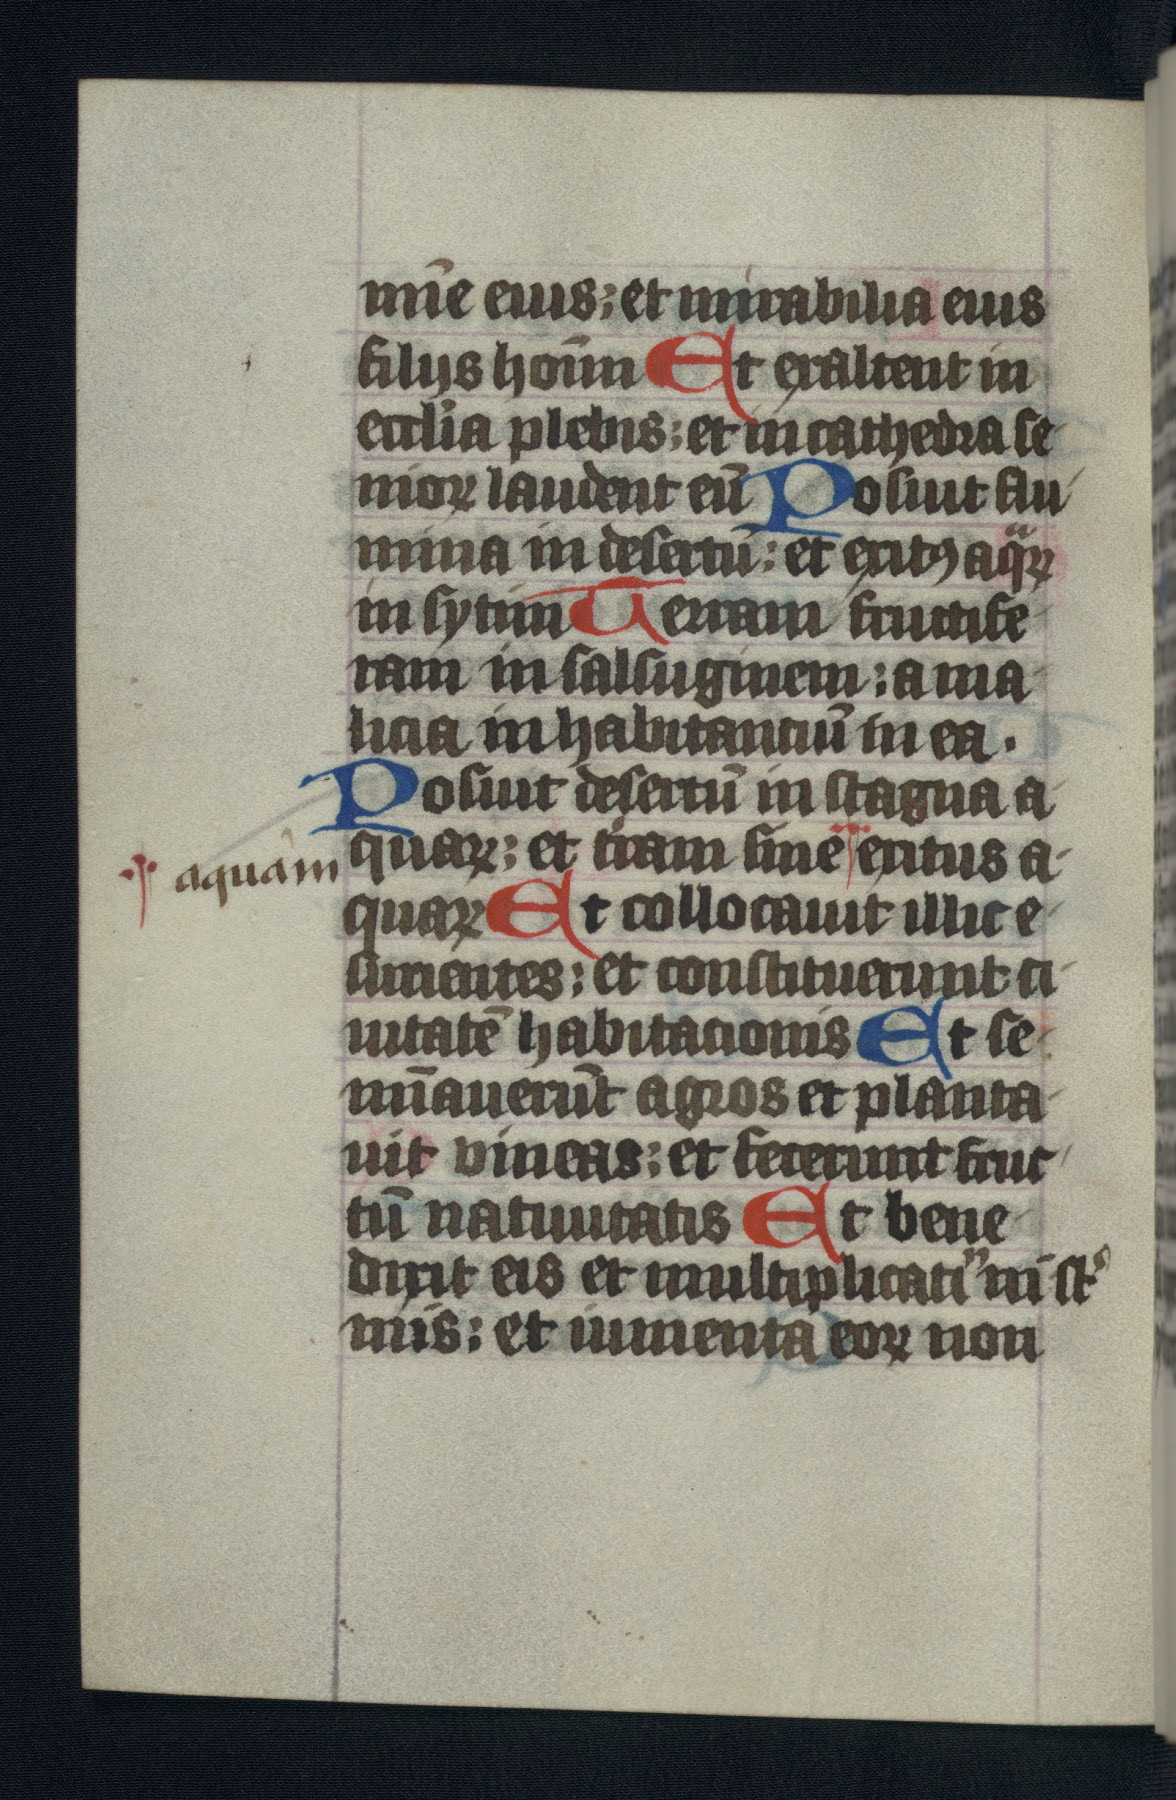 mīe eius; et mirabilia eius
filijs hoīm Et exaltent in
ecclīa plebis; et in cathedra se
nioꝝ laudent eū Posuit flu
mina in desertū: et exitꝰ aqꝝ
in sytim Terram fructife
ram in salsuginem; a ma
licia inhabitanciū in ea.
Posuit desertū in stagna a
quaꝝ; et tr̄am sine exitus a
aquam
quaꝝ Et collocauit illic e
surientes; et constituerunt ci
uitatē habitacionis Et se
mīauerūt agros et planta
uit vineas; et fecerunt fruc
tū natiuitatis Et bene
dixit eis et multiplicati
mis; et iumenta eoꝝ non